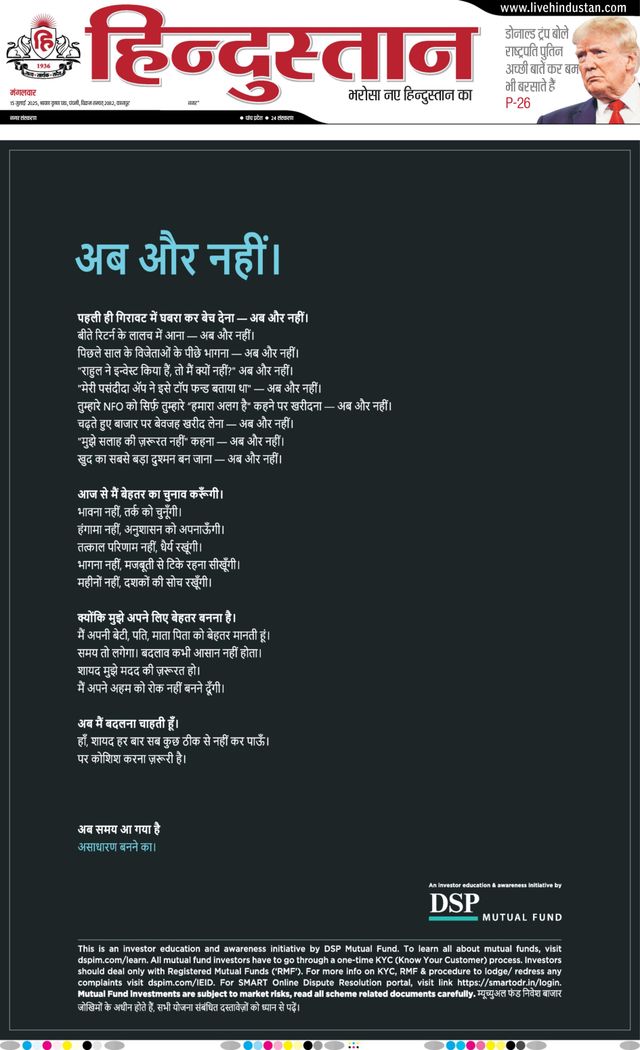 www.livehindustan.com
हिन्दुस्तान
हि
1936
भरोसा नए हिन्दुस्तान का
डोनाल्ड ट्रंप बोले
राष्ट्रपति पुतिन
अच्छी बातें कर बम
भी बरसाते हैं
P-26
मंगलवार
15 जुलाई 2025, श्रावण कृष्ण पक्ष, पंचमी, विक्रम सम्वत् 2082, कानपुर
नगर संस्करण
● पांच प्रदेश ● 24 संस्करण
अब और नहीं।
पहली ही गिरावट में घबरा कर बेच देना — अब और नहीं।
बीते रिटर्न के लालच में आना — अब और नहीं।
पिछले साल के विजेताओं के पीछे भागना — अब और नहीं।
"राहुल ने इन्वेस्ट किया हैं, तो मैं क्यों नहीं?" अब और नहीं।
"मेरी पसंदीदा ॲप ने इसे टॉप फन्ड बताया था" — अब और नहीं।
तुम्हारे NFO को सिर्फ़ तुम्हारे "हमारा अलग है" कहने पर खरीदना — अब और नहीं।
चढ़ते हुए बाजार पर बेवजह खरीद लेना — अब और नहीं।
"मुझे सलाह की ज़रूरत नहीं" कहना — अब और नहीं।
खुद का सबसे बड़ा दुश्मन बन जाना — अब और नहीं।
आज से मैं बेहतर का चुनाव करूँगी।
भावना नहीं, तर्क को चुनूँगी।
हंगामा नहीं, अनुशासन को अपनाऊँगी।
तत्काल परिणाम नहीं, धैर्य रखूंगी।
भागना नहीं, मजबूती से टिके रहना सीखूँगी।
महीनों नहीं, दशकों की सोच रखूँगी।
क्योंकि मुझे अपने लिए बेहतर बनना है।
मैं अपनी बेटी, पति, माता पिता को बेहतर मानती हूं।
समय तो लगेगा। बदलाव कभी आसान नहीं होता।
शायद मुझे मदद की ज़रूरत हो।
मैं अपने अहम को रोक नहीं बनने दूँगी।
अब मैं बदलना चाहती हूँ।
हाँ, शायद हर बार सब कुछ ठीक से नहीं कर पाऊँ।
पर कोशिश करना ज़रूरी है।
अब समय आ गया है
असाधारण बनने का।
An investor education & awareness initiative by
DSP
MUTUAL FUND
This is an investor education and awareness initiative by DSP Mutual Fund. To learn all about mutual funds, visit
dspim.com/learn. All mutual fund investors have to go through a one-time KYC (Know Your Customer) process. Investors
should deal only with Registered Mutual Funds ('RMF'). For more info on KYC, RMF & procedure to lodge/ redress any
complaints visit dspim.com/IEID. For SMART Online Dispute Resolution portal, visit link https://smartodr.in/login.
Mutual Fund Investments are subject to market risks, read all scheme related documents carefully. म्यूच्युअल फंड निवेश बाजार
जोखिमों के अधीन होते हैं, सभी योजना संबंधित दस्तावेज़ों को ध्यान से पढ़ें।